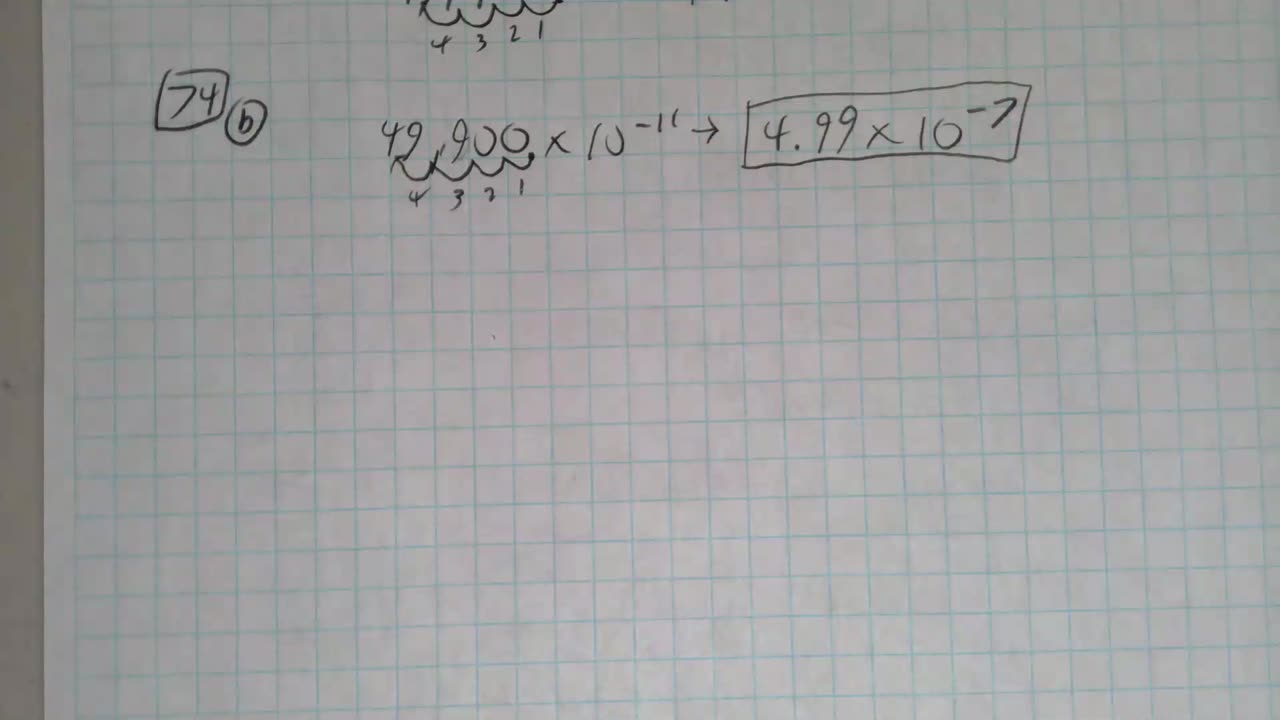 4 3 2 1
74 b 49,900. × 10⁻¹¹ → 4.99 × 10⁻⁷
4 3 2 1